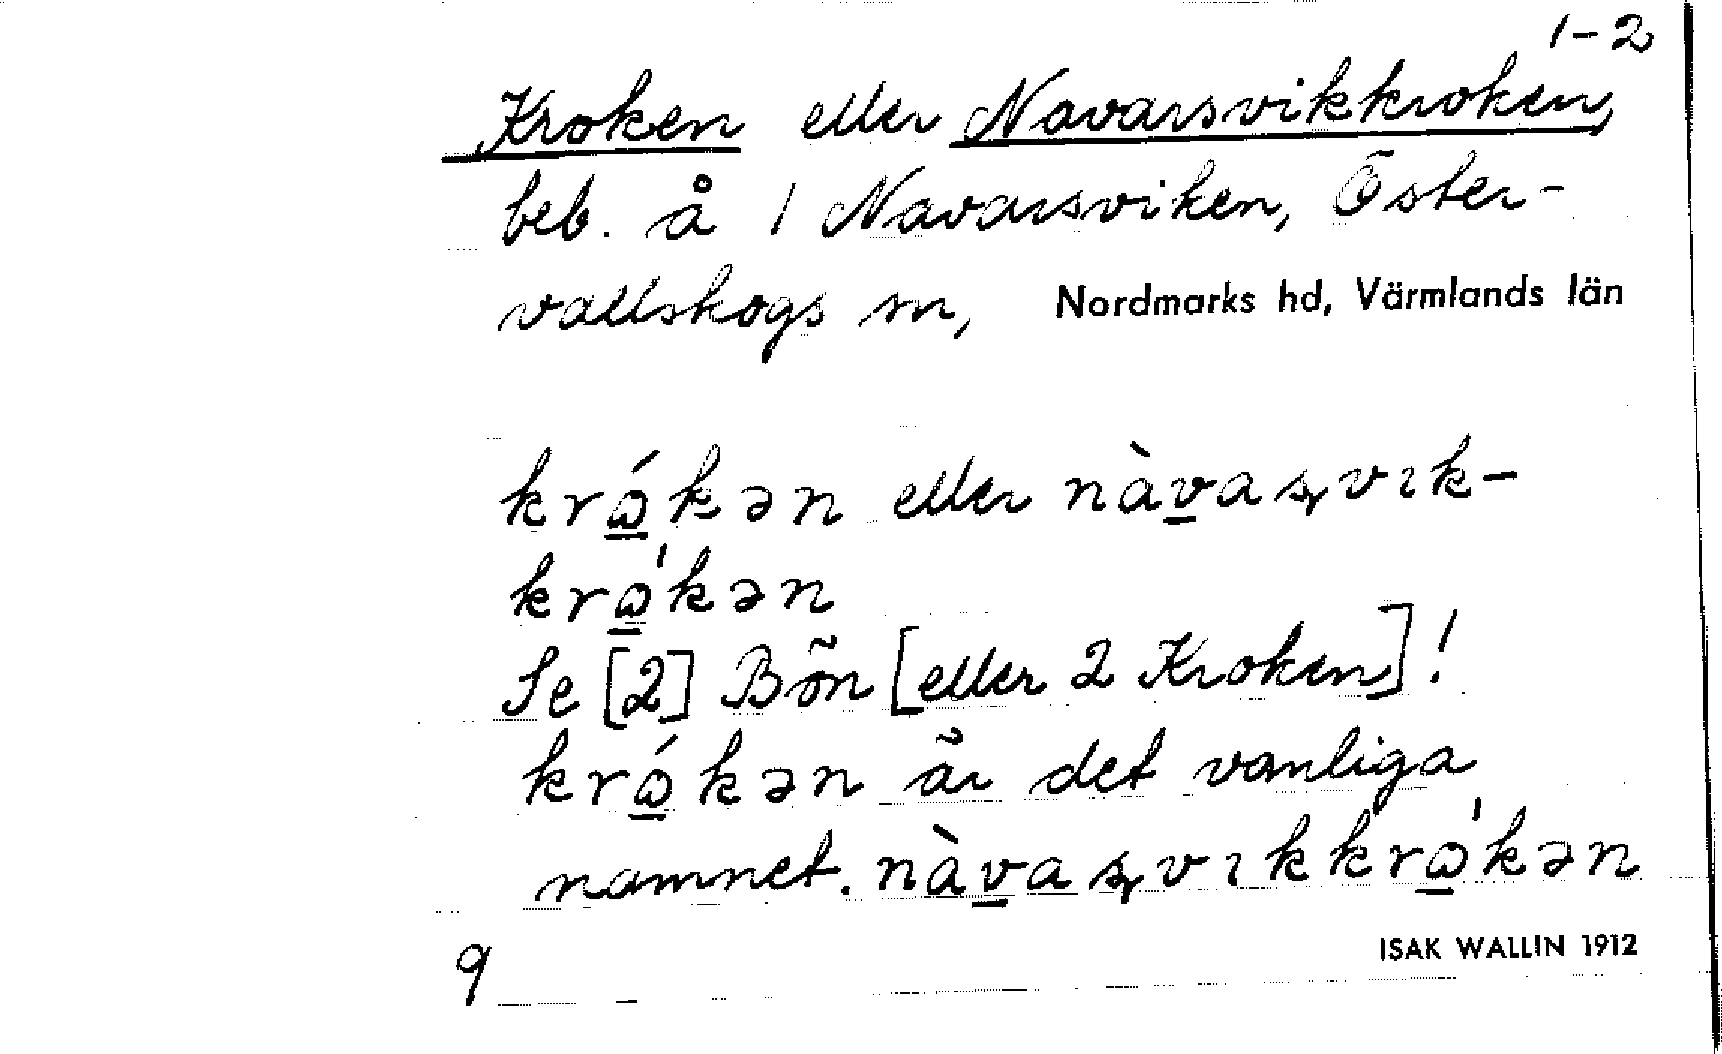 1-2
Kroken eller Navarsvikkroken,
beb. å 1 Navarsviken, Öster-
vallskogs sn, Nordmarks hd, Värmlands län
krώ̲kən eller nàv̲aʂvɩk-
krω̲̍kən
Se [2] Bön [eller 2 Kroken]!
krώ̲kən är det vanliga
namnet. nàv̲aʂvɩkkrω̲̍kən
9 ISAK WALLIN 1912